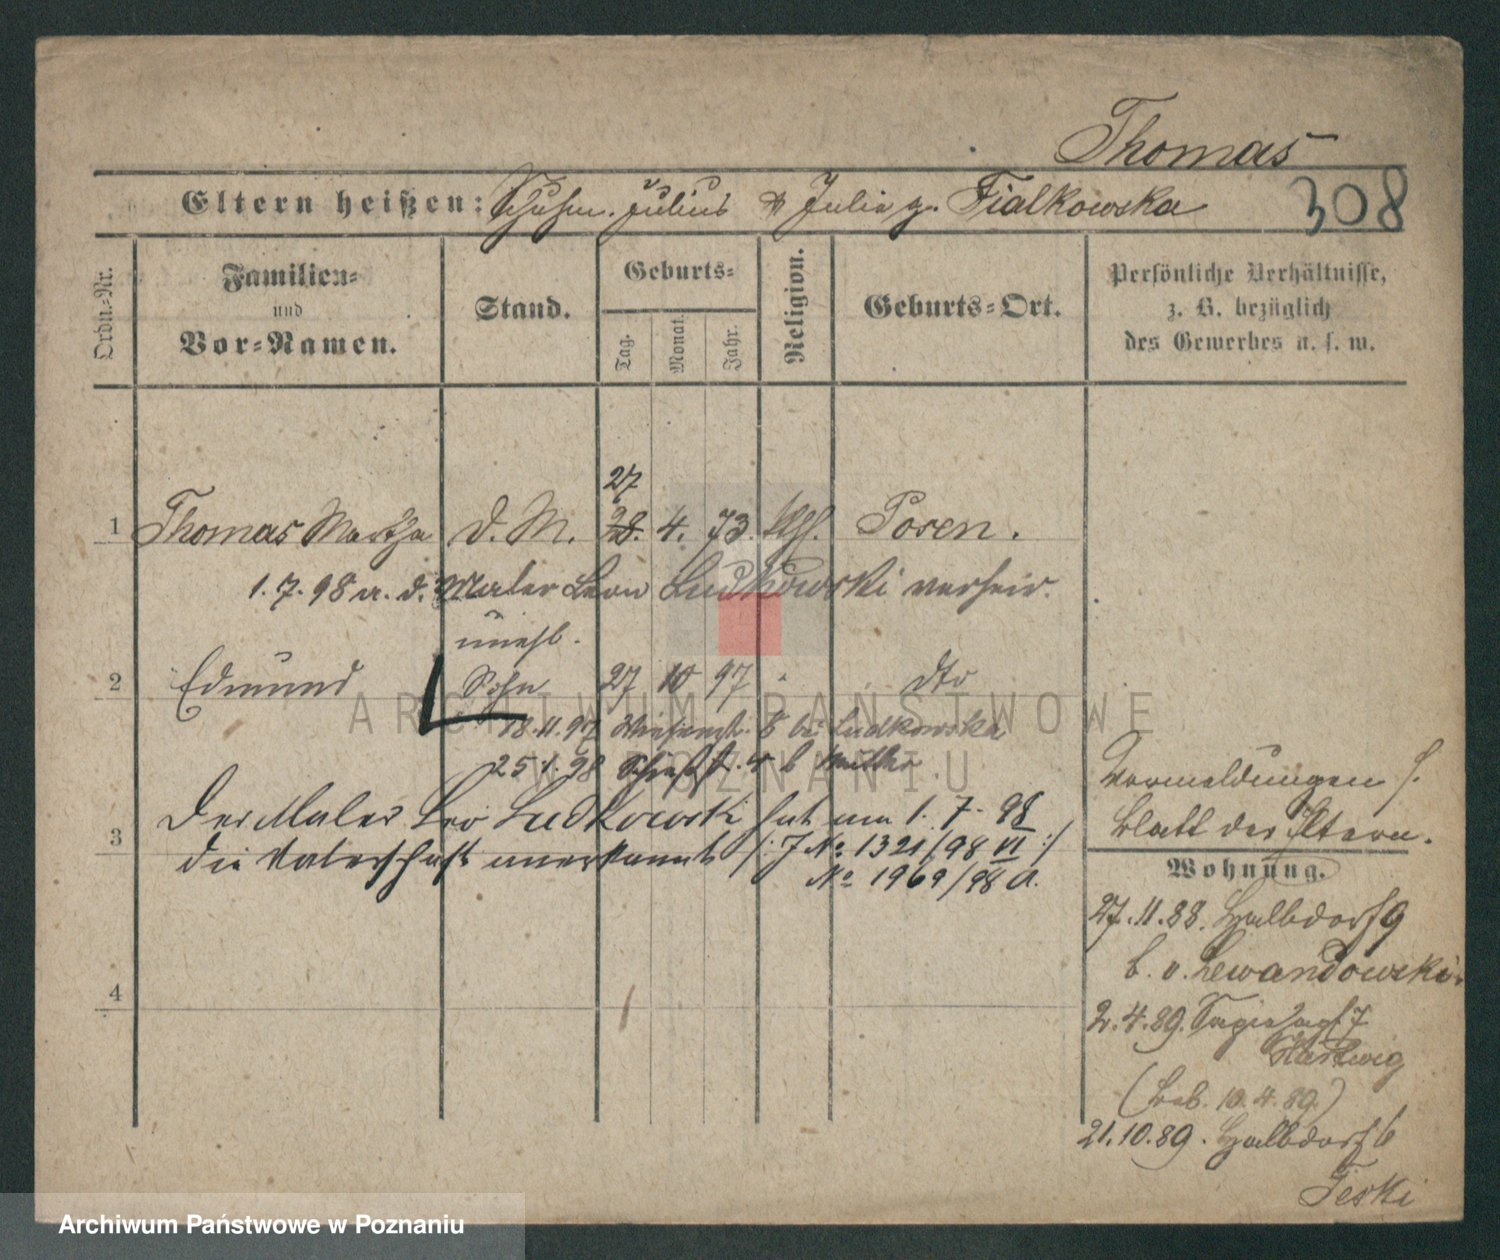 Thomas
Eltern heißen: Schuhm. Julius & Julie g. Fialkowska
308
Ordn.-Nr.
Familien-
und
Vor-Namen.
Stand.
Geburts-
Tag.
Monat.
Jahr.
Religion.
Geburts-Ort.
Persönliche Verhältnisse,
z. B. bezüglich
des Gewerbes u. s. w.
27
1 Thomas Martha d. M. 28. 4. 73. kth. Posen.
1. 7. 98 a. d. Maler Leon Ludkowski verheir.
unehl.
2 Edmund Sohn 27 10 97 dto
18.11.97 Wiesenstr. 8 bei Ludkowska
25.1.98 4 b Mutter
Der Maler Leo Ludkowski hat am 1. 7. 98
3 die Vaterschaft anerkannt /: J No 1321/98 VI :/
No 1969/98 A.
4
Vormeldungen s.
Blatt der Eltern.
Wohnung.
27.11.88. Halbdorf 9
b. v. Lewandowski.
2.4.89. 7
Hartwig
10.4.89.)
21.10.89. Halbdorf 6
Teski
ARCHIWUM PAŃSTWOWE
W POZNANIU
Archiwum Państwowe w Poznaniu